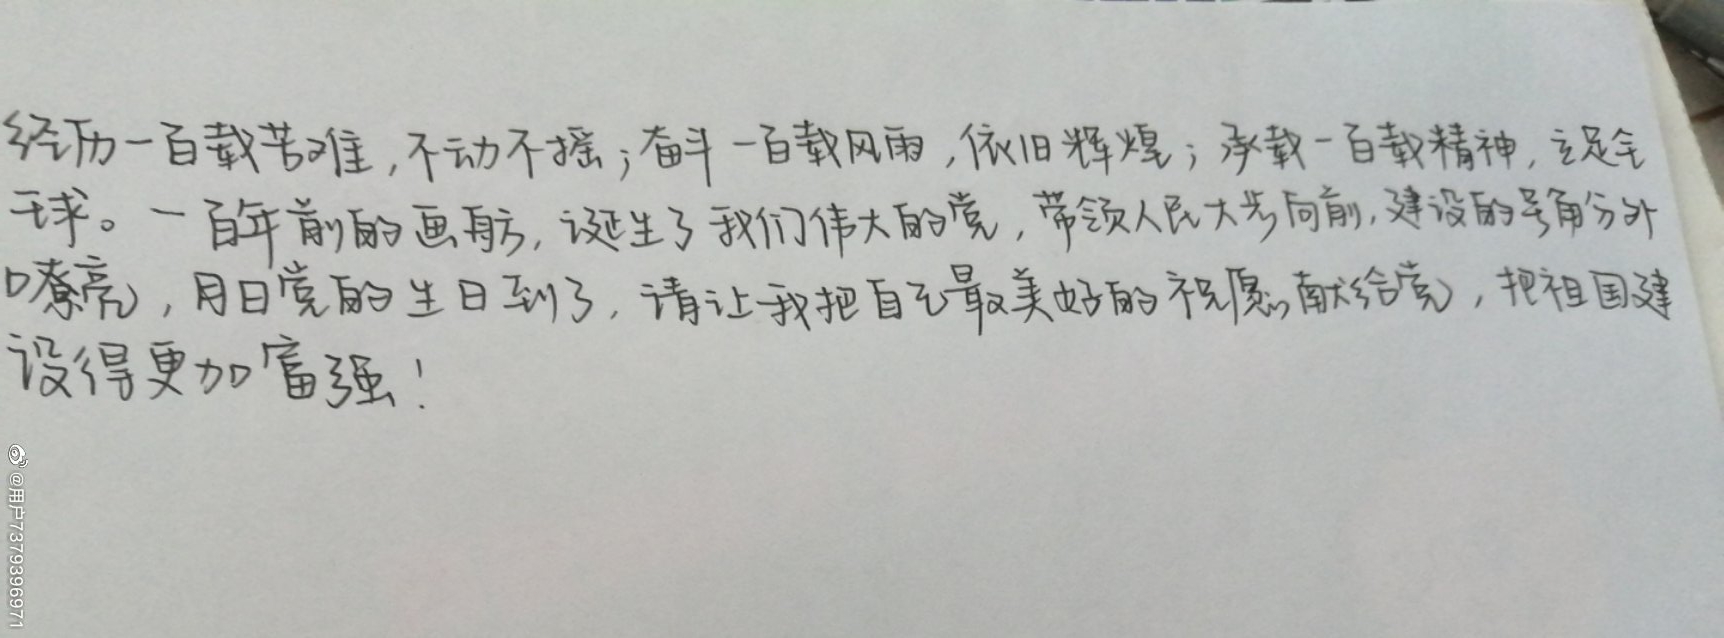 经历一百载苦难,不动不摇;奋斗一百载风雨,依旧辉煌;承载一百载精神,立足全
球。一百年前的画舫,诞生了我们伟大的党,带领人民大步向前,建设的号角分外
嘹亮,月日党的生日到了,请让我把自己最美好的祝愿献给党,把祖国建
设得更加富强!
@用户7379396971